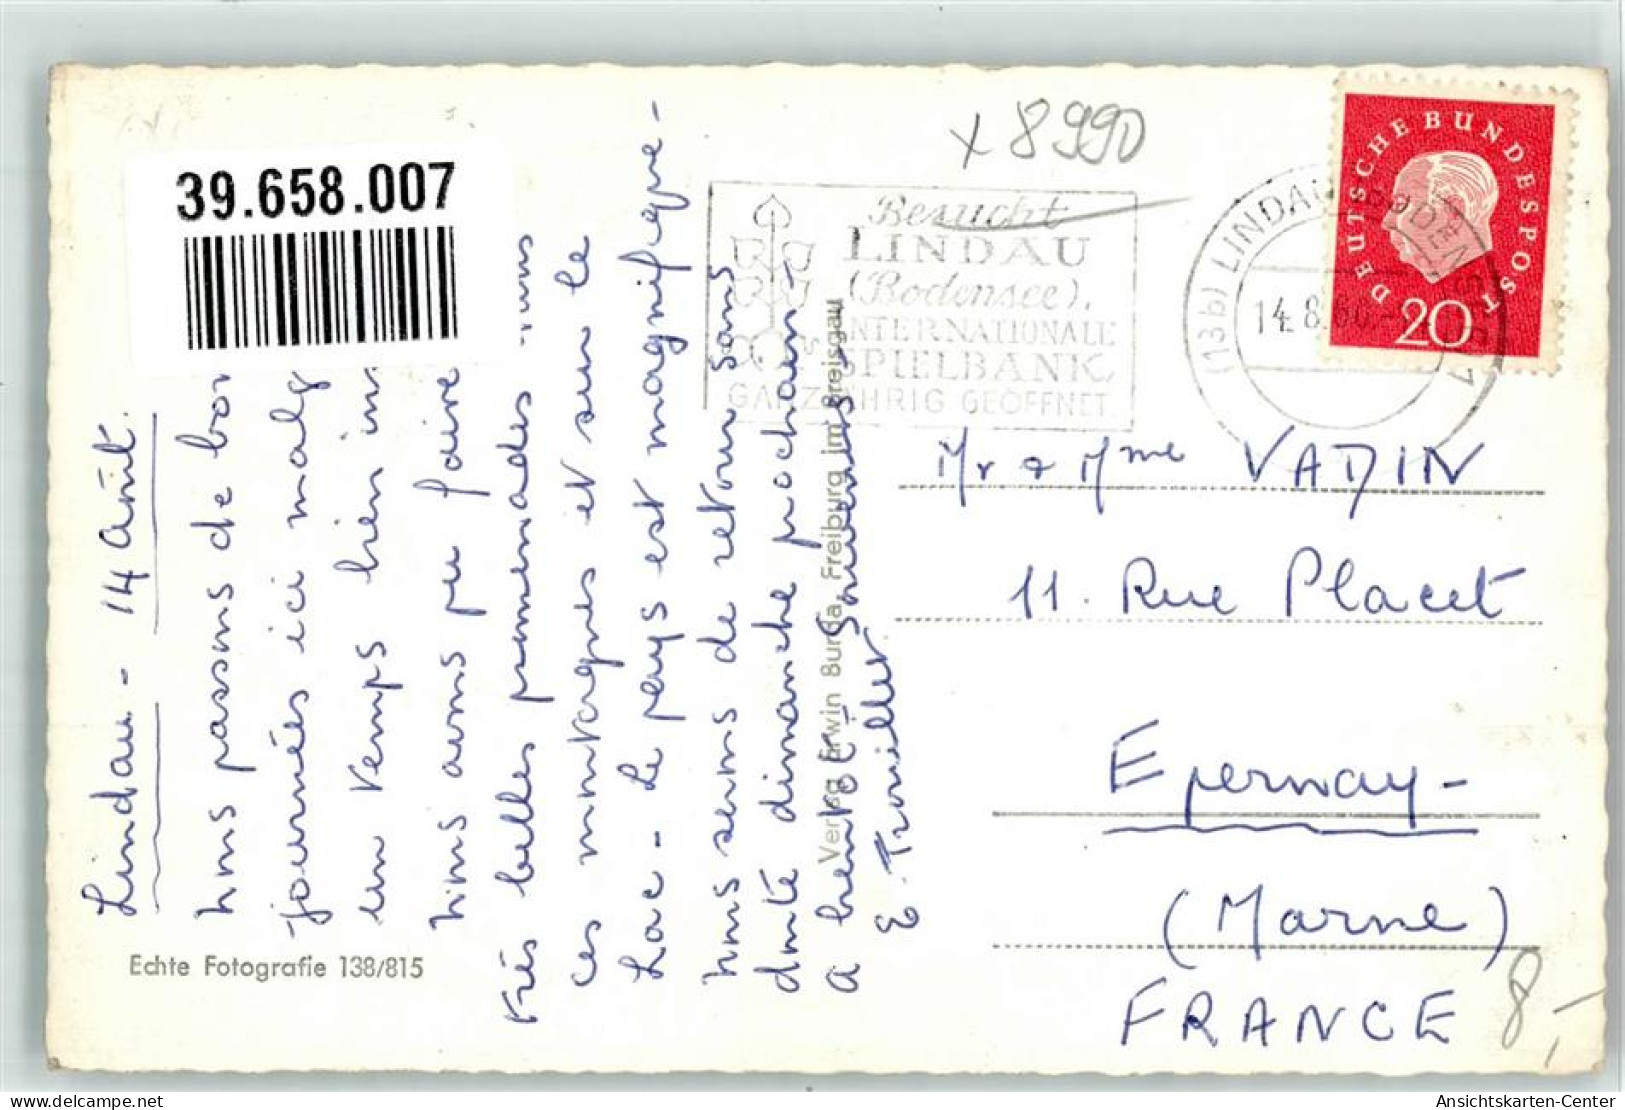 39.658.007
x 8990
Besucht
LINDAU
(Bodensee).
INTERNATIONALE
SPIELBANK
GANZJÄHRIG GEÖFFNET.
(13b) LINDAU (BODENSEE)
14.8.60.
DEUTSCHE BUNDESPOST
20
Lindau - 14 août.
nous passons de bon
journées ici malg
un temps bien in
nous avons pu faire
très belles promenades dans
ces montagnes et sur le
Lac - Le pays est magnifique -
nous serons de retour sans
doute dimanche prochain -
a bientôt - Souvenirs
E. Trouillet
Verlag Erwin Burda, Freiburg im Breisgau
Mr & Mme VADIN
11. Rue Placet
Epernay -
(Marne)
FRANCE
8,-
Echte Fotografie 138/815
www.delcampe.net
Ansichtskarten-Center